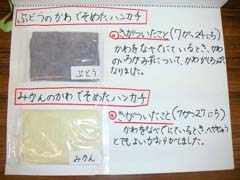 ぶどうのかわでそめたハンカチ
ぶどう
きがついたこと(7がつ24にち)
かわをなべでにているとき、かわ
のいろがみずについて、かわがちゃいろに
なりました。
みかんのかわでそめたハンカチ
みかん
きがついたこと(7がつ27にち)
かわをなべでにているとき、へやじゅう
とてもよいかおりがしました。